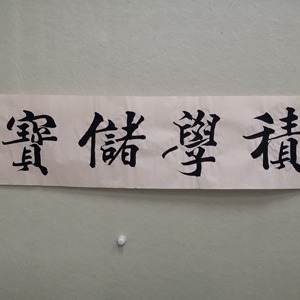 積學儲寶